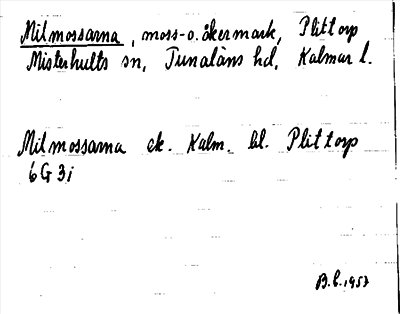 Milmossarna, moss- o. åkermark, Plittorp
Misterhults sn, Tunaläns hd, Kalmar l.
Milmossarna ek. Kalm. bl. Plittorp
6 G 3 i
B.l. 1957